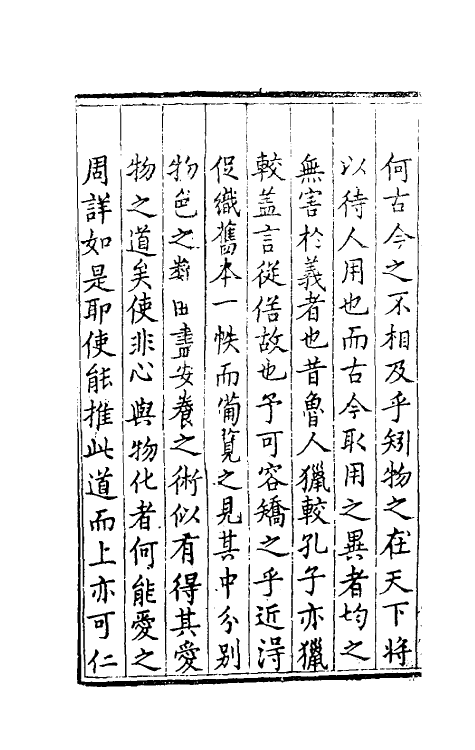 何古今之不相及乎矧物之在天下將
以待人用也而古今取用之異者均之
無害於義者也昔魯人獵較孔子亦獵
較蓋言從俗故也予可容矯之乎近得
促織舊本一帙而備覽之見其中分別
物色之類田畫安養之術似有得其愛
物之道矣使非心與物化者何能愛之
周詳如是耶使能推此道而上亦可仁